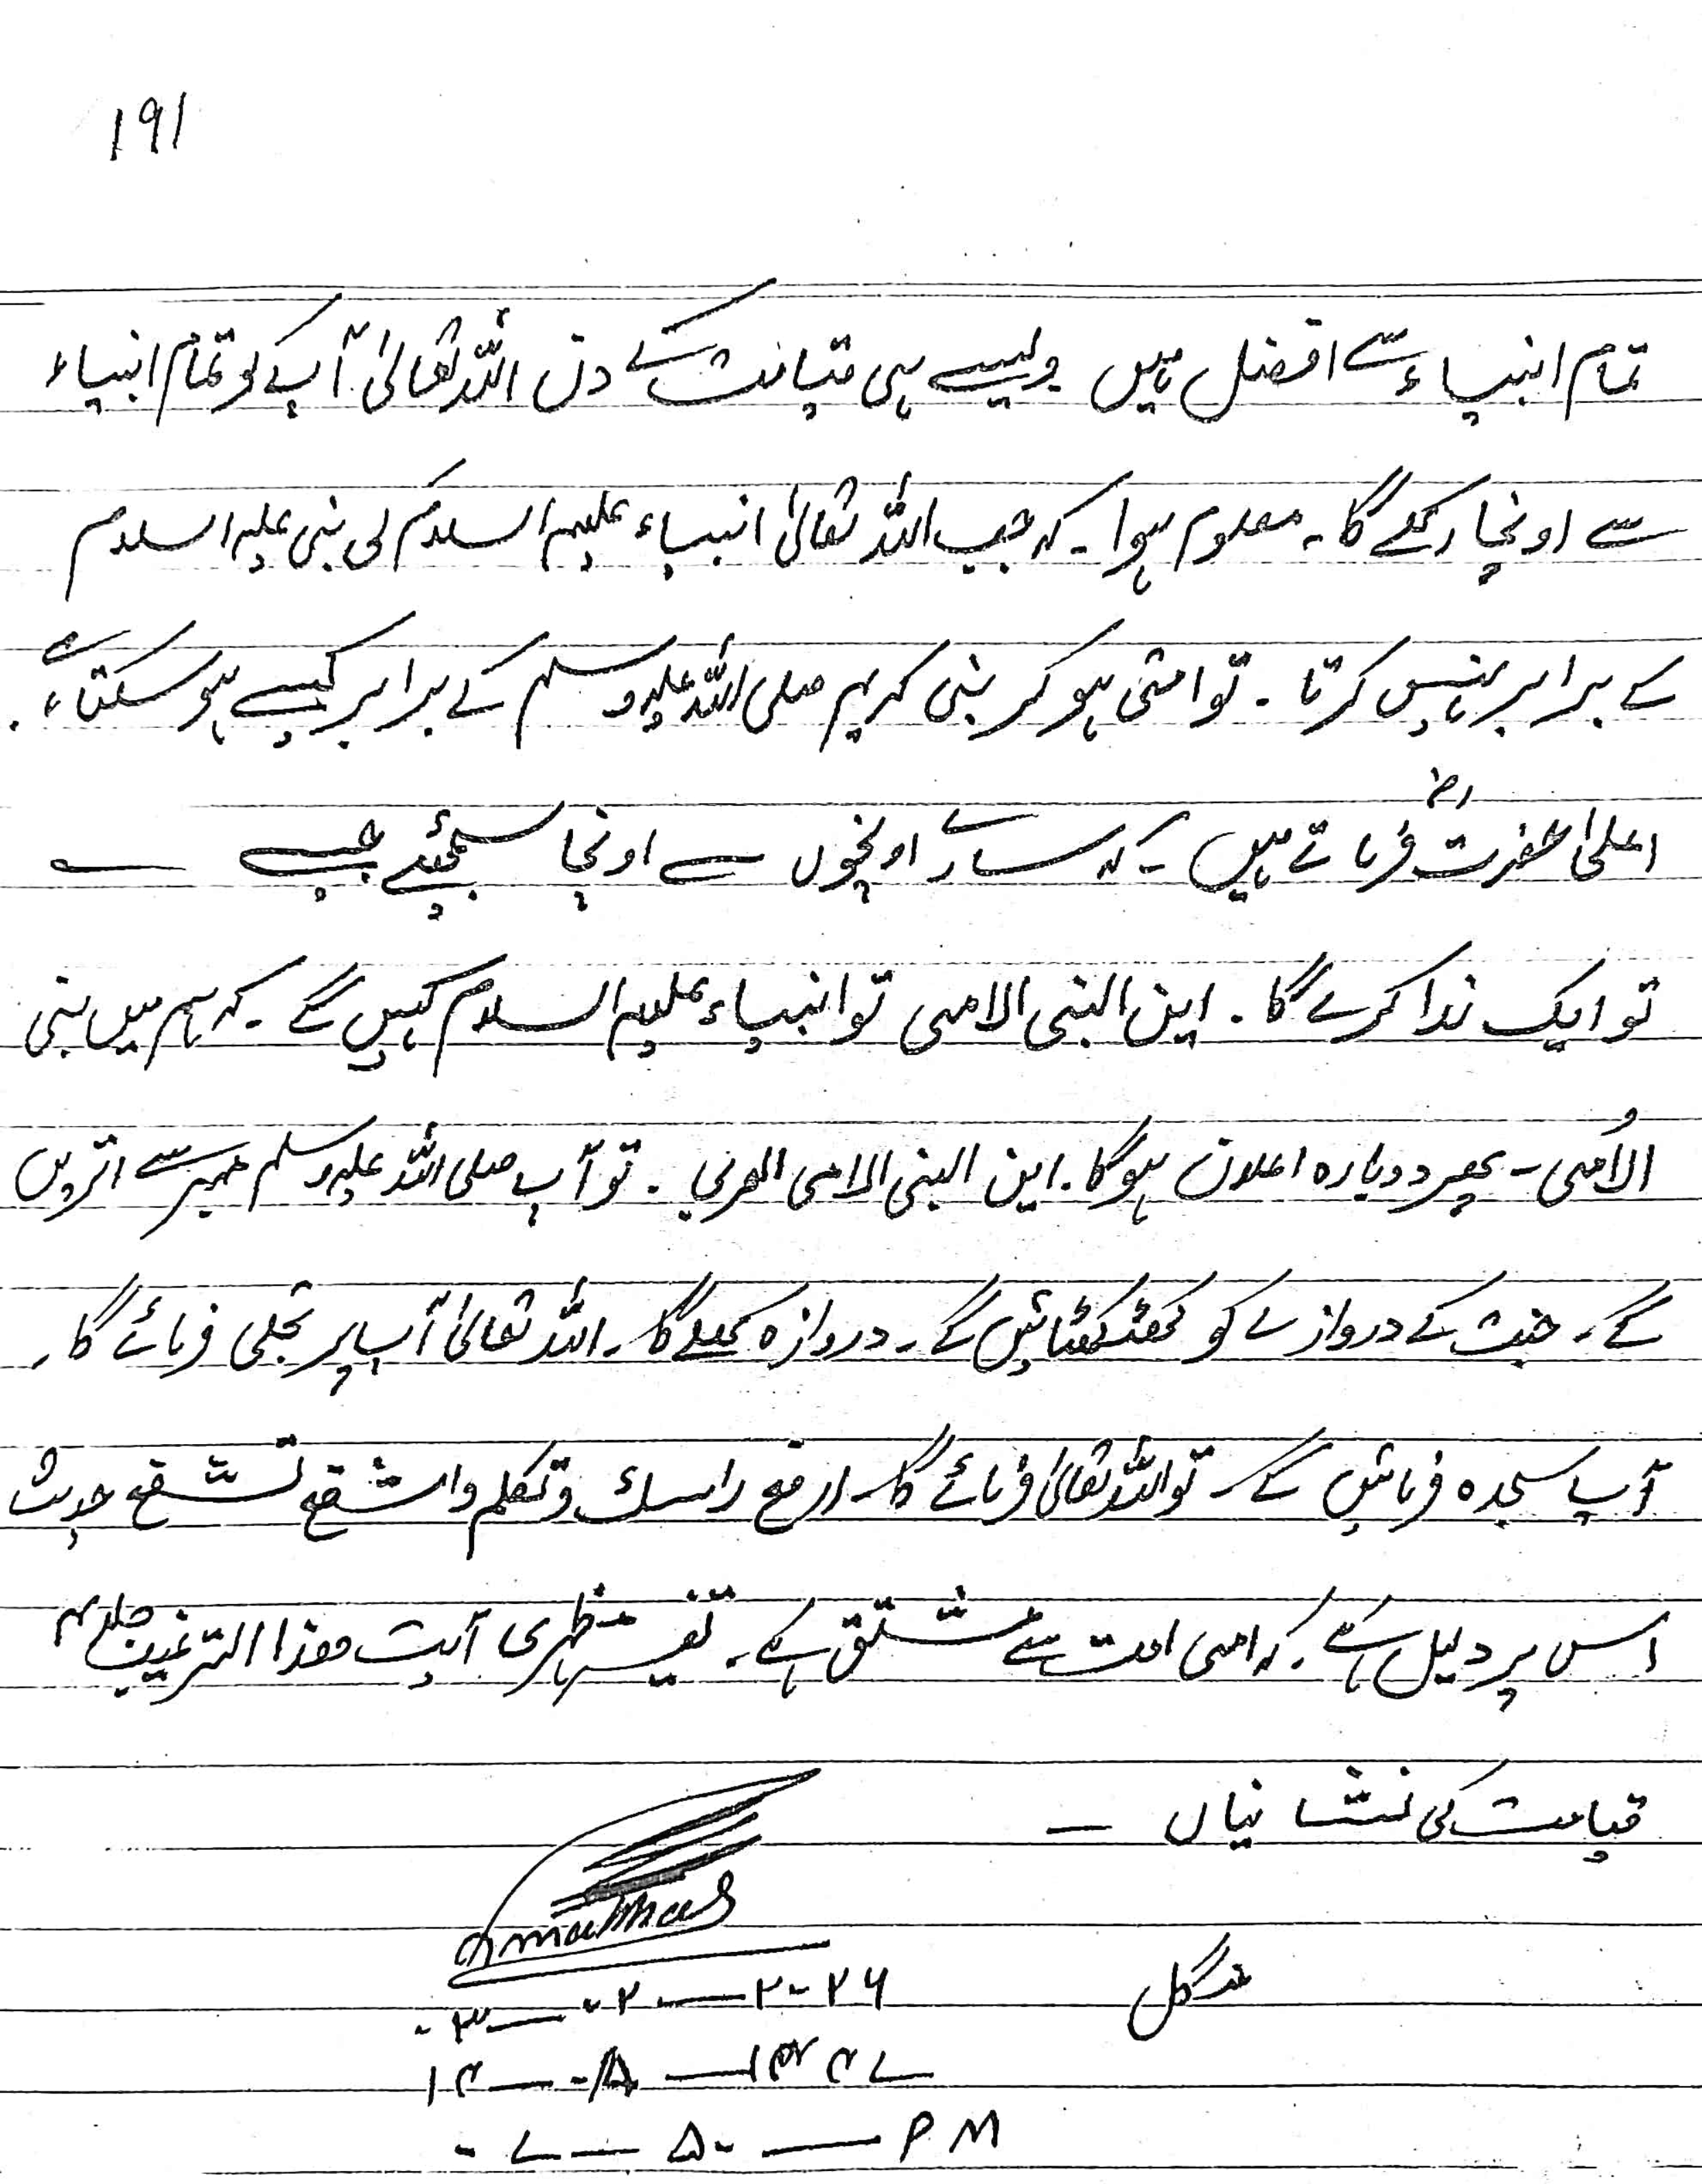 191
تمام انبیاء سے افضل ہیں ویسے ہی قیامت کے دن اللہ تعالیٰ آپ کو تمام انبیاء
سے اونچا رکھے گا۔ معلوم ہوا۔ کہ جب اللہ تعالیٰ انبیاء علیہم السلام کی نبی علیہ السلام
کے برابر نہیں کرتا۔ تو امتی ہو کر نبی کریم صلی اللہ علیہ وسلم کے برابر کیسے ہو سکتا ہے۔
اعلیٰ حضرت رض فرماتے ہیں۔ کہ سارے اونچوں سے اونچا سمجھئے جسے —
تو ایک ندا کرے گا۔ این النبی الامی تو انبیاء علیہم السلام کہیں گے۔ کہ ہم میں نبی
الاُمی۔ پھر دوبارہ اعلان ہوگا۔ این النبی الامی العربی۔ تو آپ صلی اللہ علیہ وسلم ممبر سے اتریں
گے۔ جنت کے دروازے کو کھٹکھٹائیں گے۔ دروازہ کھلے گا۔ اللہ تعالیٰ آپ پر تجلی فرمائے گا۔
آپ سجدہ فرمائیں گے۔ تو اللہ تعالیٰ فرمائے گا۔ ارفع راسک وتکلم واشفع تشفع حدیث
اس پر دلیل ہے۔ کہ امی امت سے مشتق ہے۔ تفسیر مظہری آیت ھذا الترغیب جلد ۴
قیامت کی نشانیاں —
منگل
۰۳—۰۲—۲۰۲۶
۱۴—۰۸—۱۴۴۷
۰۷—۵۰—PM